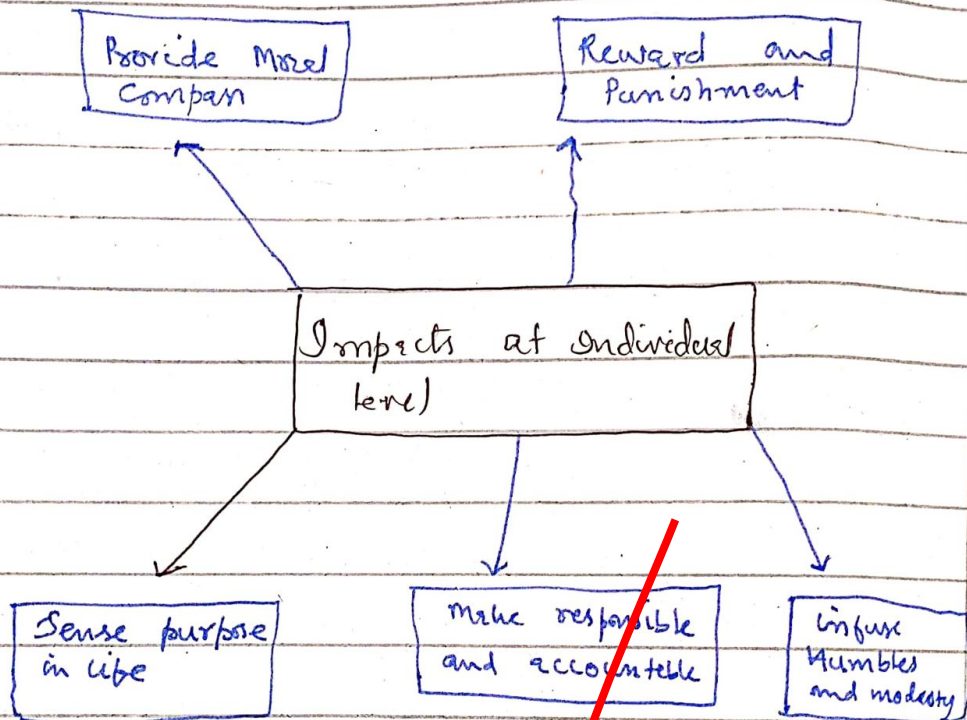 Provide Moral
Compass
Reward and
Punishment
Impacts at Individual
level
Sense purpose
in life
Make responsible
and accountable
infuse
Humbles
and modesty